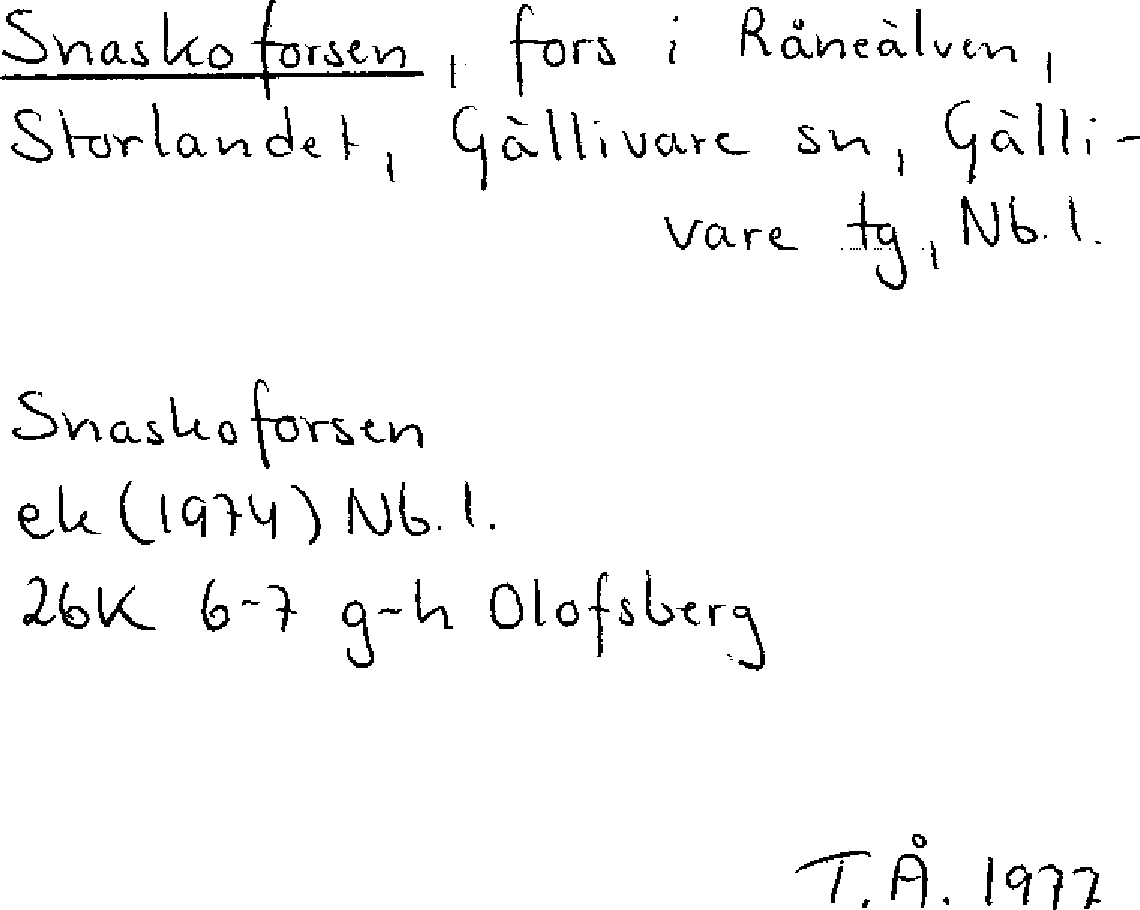 Snaskoforsen, fors i Råneälven,
Storlandet, Gällivare sn, Gälli-
vare tg, Nb. l.
Snaskoforsen
ek (1974) Nb. l.
26K 6-7 g-h Olofsberg
T.Å. 1977